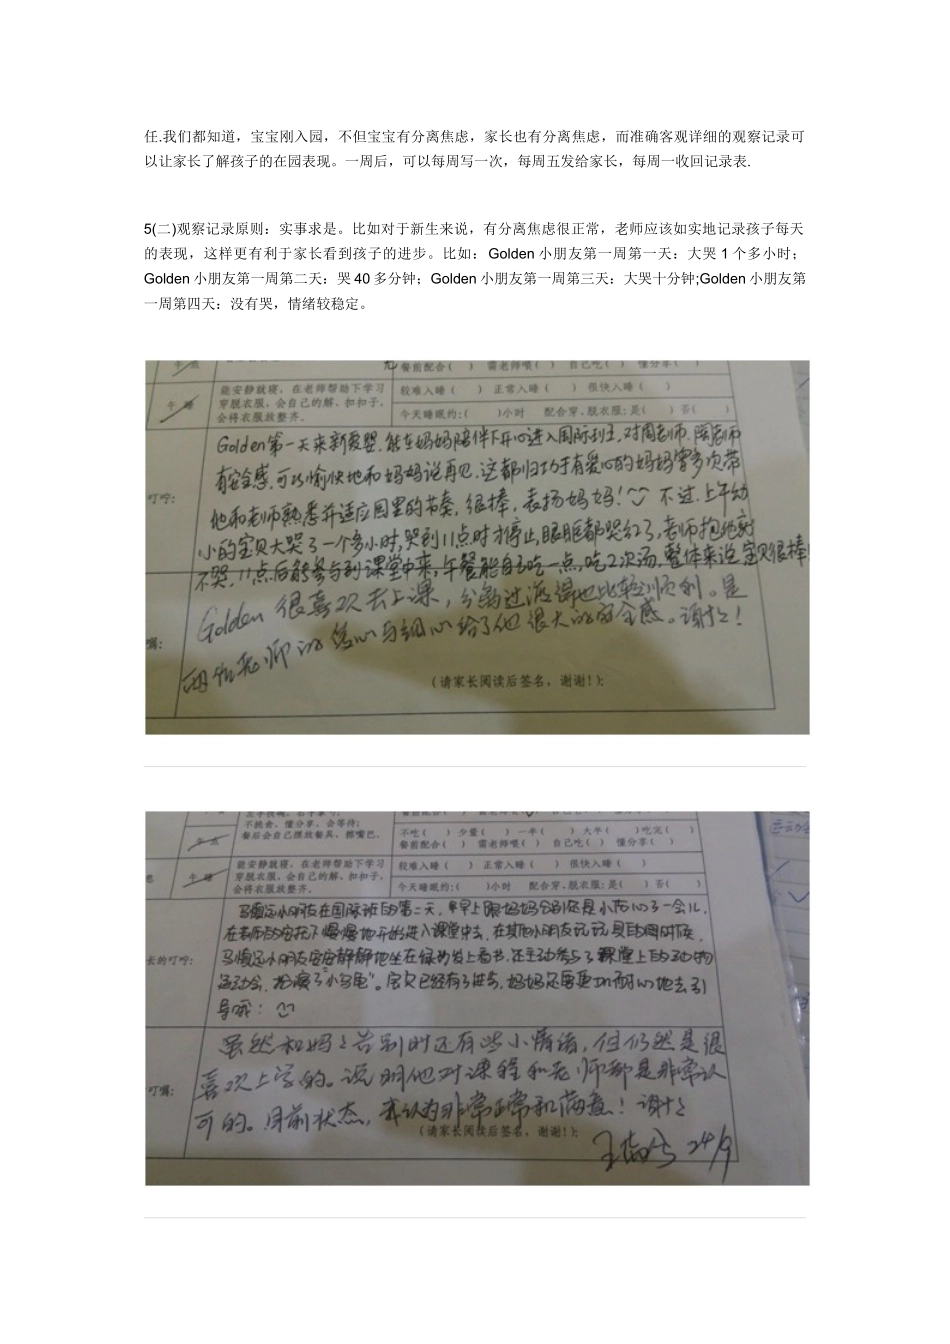 任.我们都知道，宝宝刚入园，不但宝宝有分离焦虑，家长也有分离焦虑，而准确客观详细的观察记录可
以让家长了解孩子的在园表现。一周后，可以每周写一次，每周五发给家长，每周一收回记录表.
5(二)观察记录原则：实事求是。比如对于新生来说，有分离焦虑很正常，老师应该如实地记录孩子每天
的表现，这样更有利于家长看到孩子的进步。比如：Golden 小朋友第一周第一天：大哭 1 个多小时；
Golden 小朋友第一周第二天：哭 40 多分钟；Golden 小朋友第一周第三天：大哭十分钟;Golden 小朋友第
一周第四天：没有哭，情绪较稳定。
午点
餐前配合( ) 需老师喂( ) 自己吃( ) 懂分享( )
午睡
能安静就寝，在老师帮助下学习
穿脱衣服，会自己的解、扣扣子，
会将衣服放整齐。
较难入睡 ( ) 正常入睡 ( ) 很快入睡 ( )
今天睡眠约:( )小时 配合穿、脱衣服: 是( ) 否( )
叮咛:
Golden第一天来新爱婴，能在妈妈陪伴下开心进入国际班，对周老师、陶老师
有安全感，可以愉快地和妈妈说再见，这都归功于有爱心的妈妈曾多次带
他和老师熟悉并适应园里的节奏，很棒，表扬妈妈！不过，上午幼
小的宝贝大哭了一个多小时，哭到11点时才停止，眼眶都哭红了，老师抱他就
不哭，11点后能参与到课堂中来，午餐能自主吃一点，吃2次汤，整体来说宝贝很棒
嘱:
Golden 很喜欢去上课，分离过渡得也比较顺利。是
两位老师的信心与细心给了他很大的安全感。谢谢！
(请家长阅读后签名，谢谢！):
不挑食、懂分享、会等待；
餐后会自己摆放餐具、擦嘴巴。
午点
不吃( ) 少量( ) 一半( ) 大半( ) 吃完( )
餐前配合( ) 需老师喂( ) 自己吃( ) 懂分享( )
午睡
能安静就寝，在老师帮助下学习
穿脱衣服，会自己的解、扣扣子，
会将衣服放整齐。
较难入睡 ( ) 正常入睡 ( ) 很快入睡 ( )
今天睡眠约:( )小时 配合穿、脱衣服: 是( ) 否( )
长的叮咛:
小朋友在国际班的第二天，早上跟妈妈分别还是小伤心了一会儿，
在老师的安抚下慢慢地开始进入课堂中去，在其他小朋友玩玩具的同时候，
小朋友安安静静地坐在绿沙发上看书，还主动参与了课堂上的动物
运动会，扮演了“小乌龟”。宝贝已经有了进步，妈妈还要更加耐心地去引
导哦！
叮嘱:
虽然和妈妈告别时还有些小情绪，但仍然是很
喜欢上学的。说明他对课程和老师都是非常认
可的。目前状态，我认为非常正常和满意！谢谢
(请家长阅读后签名，谢谢！):
24/9